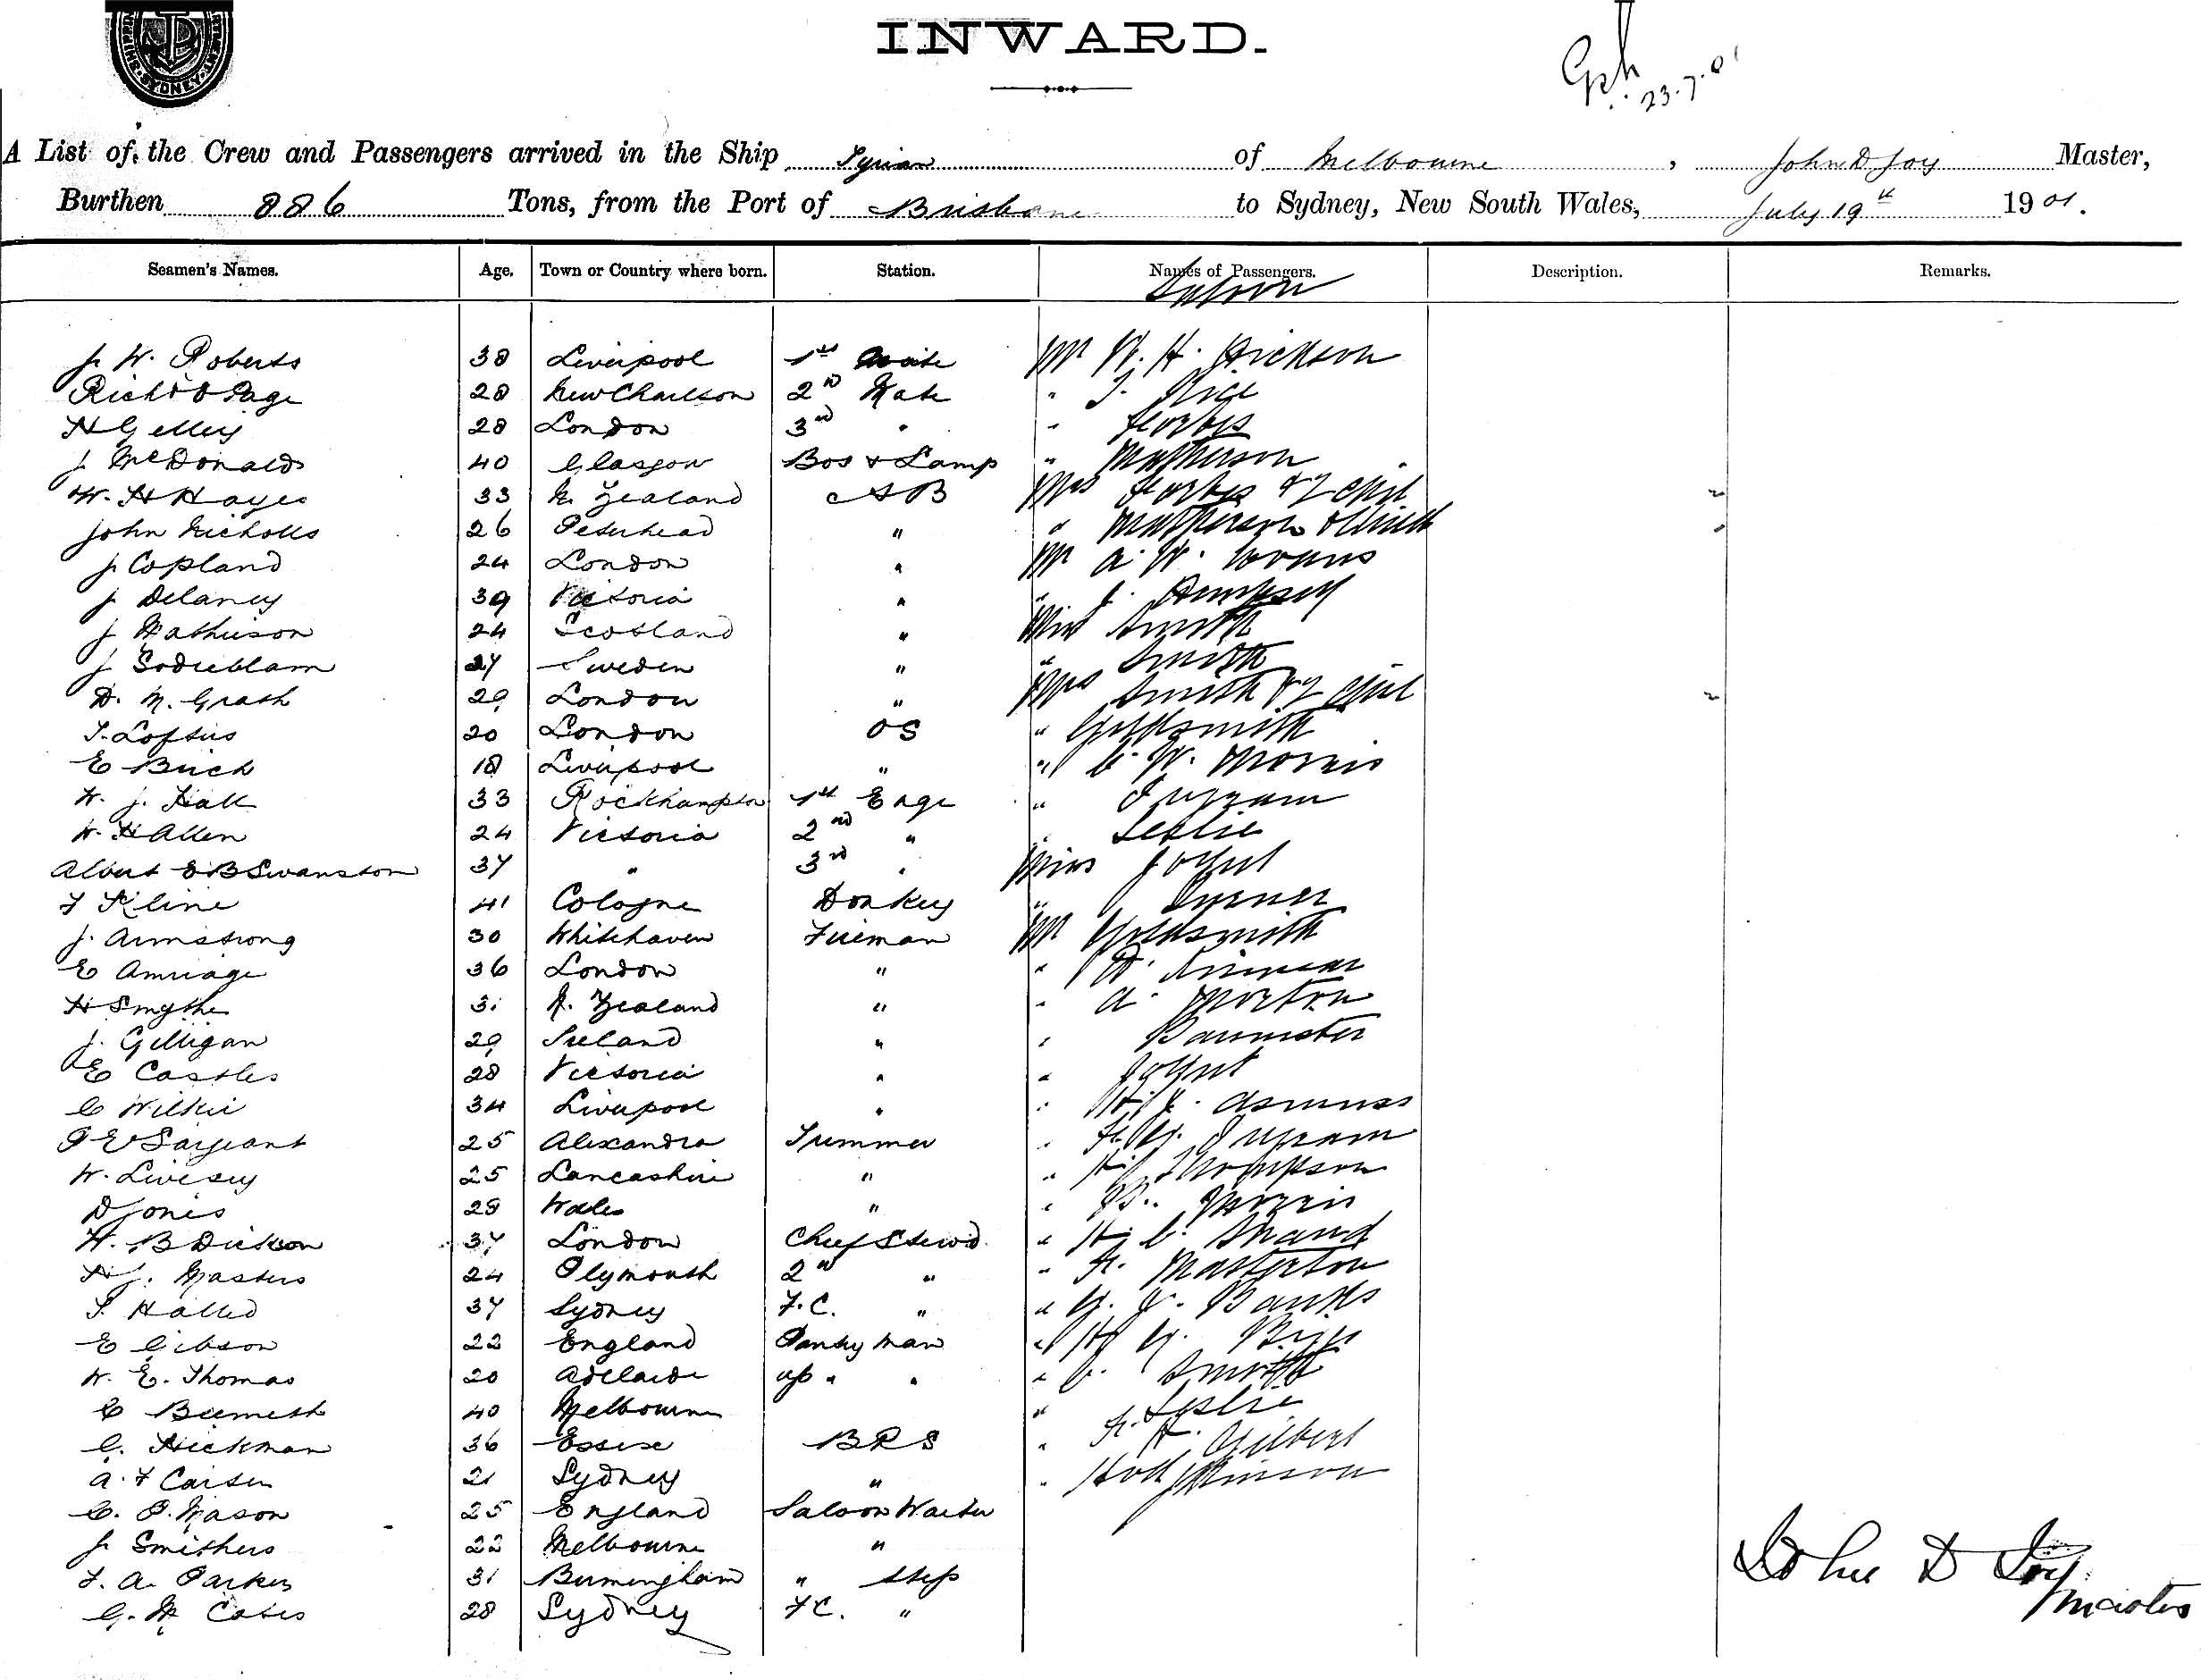 INWARD.
23.7.01
A List of the Crew and Passengers arrived in the Ship Syrian of Melbourne, John D Joy Master,
Burthen 886 Tons, from the Port of Brisbane to Sydney, New South Wales, July 19th 1901.
Seamen's Names. Age. Town or Country where born. Station. Names of Passengers. Description. Remarks.
Saloon
J. W. Roberts 38 Liverpool 1st Mate Mr W. H. Hickson
Richd D Page 28 2nd Mate " Rice
28 London 3rd " " Forbes
J McDonald 40 Glasgow Bos & Lamp " Matherson
W. H Hayes 33 N. Zealand AB Mrs Forbes & 2 chil
John Nicholls 26 Peterhead "
J Copland 24 London " Mr A. W. Evans
J Delaney 39 Victoria " " J. Dempsey
J Mathieson 24 Scotland " Miss Smith
J 27 Sweden " " Smith
D. M. Grath 29 London " Mrs Smith & 2 chil
T. Loftus 20 London OS " Goldsmith
E Birch 18 Liverpool " " C. W. Morris
W. J. Hall 33 Rockhampton 1st Enge " Ingram
W. H Allen 24 Victoria 2nd " " Leslie
Albert E B Swanston 37 " 3rd " Miss
F Kline 41 Cologne Donkey " Turner
J. Armstrong 30 Whitehaven Fireman Mr Goldsmith
E 36 London " "
H Smythe 31 N. Zealand " " A. Morton
J. Gilligan 29 Ireland " " Bannister
E Castles 28 Victoria " "
C Wilkie 34 Liverpool " "
P E Sargeant 25 Alexandra Trimmer " Ingram
W. Livesey 25 Lancashire " " Thompson
D Jones 28 Wales " " Morris
H. B Dickson 37 London Chief Stewd. " H. C. Shand
H J. Masters 24 Plymouth 2nd " " F. Masterton
37 Sydney F. C. " " G. J. Banks
E Gibson 22 England Pantry man "
W. E. Thomas 20 Adelaide up " " " C. Smith
C 40 Melbourne " F. Leslie
C. Hickman 36 Essex BRS " Gilbert
A. F Carsen 21 Sydney " "
C. P. Mason 25 England Saloon Waiter
J Smithers 22 Melbourne "
F. A. Parkes 31 Birmingham "
G. W Coles 28 Sydney F C. "
John D Joy
Master